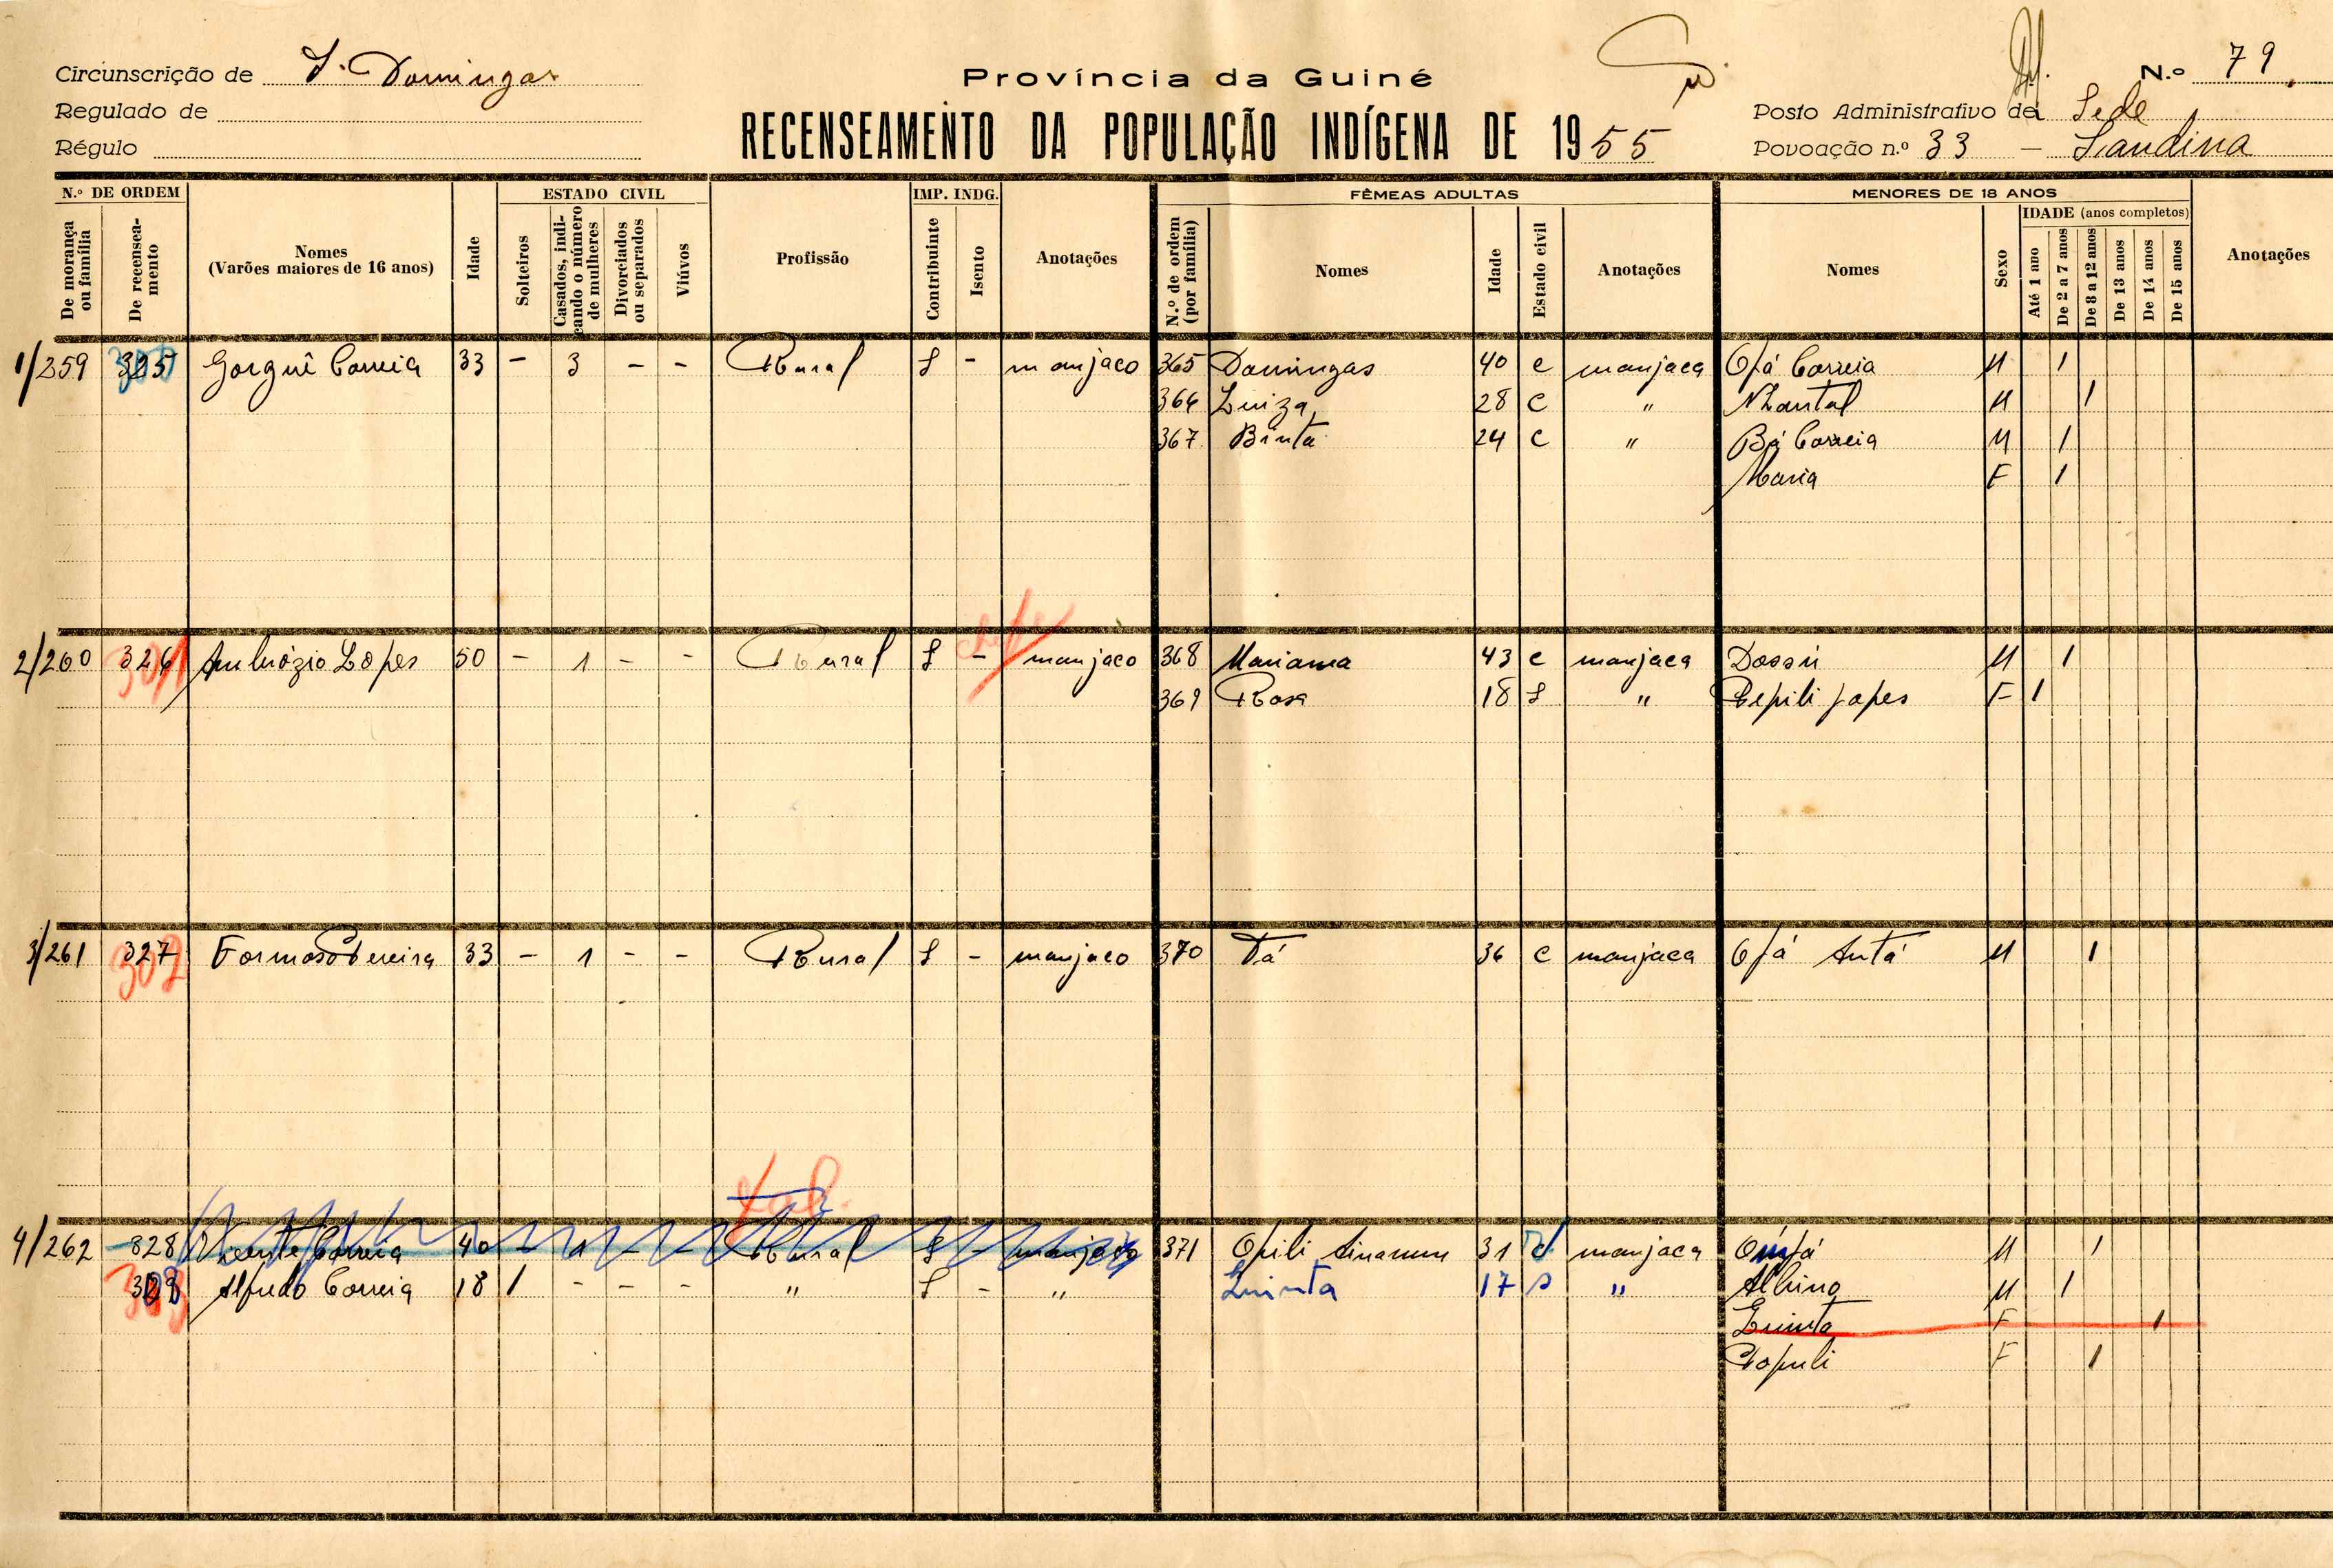 Circunscrição de S. Domingos
Regulado de
Régulo
Província da Guiné
RECENSEAMENTO DA POPULAÇÃO INDÍGENA DE 1955
N.º 79
Posto Administrativo de Sede
Povoação n.º 33 – Landina
N.º DE ORDEM
De morança ou família
De recenseamento
Nomes
(Varões maiores de 16 anos)
Idade
ESTADO CIVIL
Solteiros
Casados, indicando o número de mulheres
Divorciados ou separados
Viúvos
Profissão
IMP. INDG.
Contribuinte
Isento
Anotações
FÊMEAS ADULTAS
N.º de ordem (por família)
Nomes
Idade
Estado civil
Anotações
MENORES DE 18 ANOS
Nomes
Sexo
IDADE (anos completos)
Até 1 ano
De 2 a 7 anos
De 8 a 12 anos
De 13 anos
De 14 anos
De 15 anos
Anotações
1/259 325 Gorguî Correia 33 – 3 – – Rural S – manjaco 365 Domingas 40 c manjaca Ofá Correia M 1
366 Luiza 28 c " Nhantal M 1
367 Binta 24 c " Bá Correia M 1
Maria F 1
2/260 326 301 Ambrózio Lopes 50 – 1 – – Rural S – manjaco 368 Mariama 43 c manjaca Dossú M 1
369 Rosa 18 S " Pepili Lopes F 1
3/261 327 302 Formoso Pereira 33 – 1 – – Rural S – manjaco 370 Tá 36 c manjaca Ofá Antá M 1
4/262 328 Vicente Correia 40 – 1 – – Rural S – manjaco 371 Opili 31 manjaca M 1
303 Alfredo Correia 18 1 – – – " S – " Quinta 17 s " Albino M 1
Quinta F 1
Populi F 1